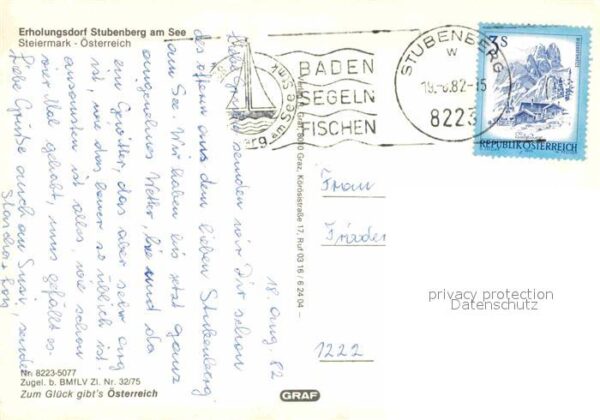 Erholungsdorf Stubenberg am See
Steiermark - Österreich
BADEN
SEGELN
FISCHEN
am See Stmk
STUBENBERG
W
19.-8.82-15
8223
3 S
REPUBLIK ÖSTERREICH
18. Aug 82
senden wir Dir schon
des öftern aus dem lieben Stubenberg
am See. Wir haben bis jetzt ganz
angenehmes Wetter, hie und da
ein Gewitter, das aber sehr eng
ist, wie das immer so üblich ist
ansonsten ist alles, wie schon
vier Mal gehabt, uns gefällt es.
Liebe Grüße auch an Susi, senden
Verlag Graf, 8010 Graz, Körösistraße 17, Ruf 03 16 / 6 24 04
Frau
1222
privacy protection
Datenschutz
Nr. 8223-5077
Zugel. b. BMfLV Zl. Nr. 32/75
Zum Glück gibt's Österreich
GRAF